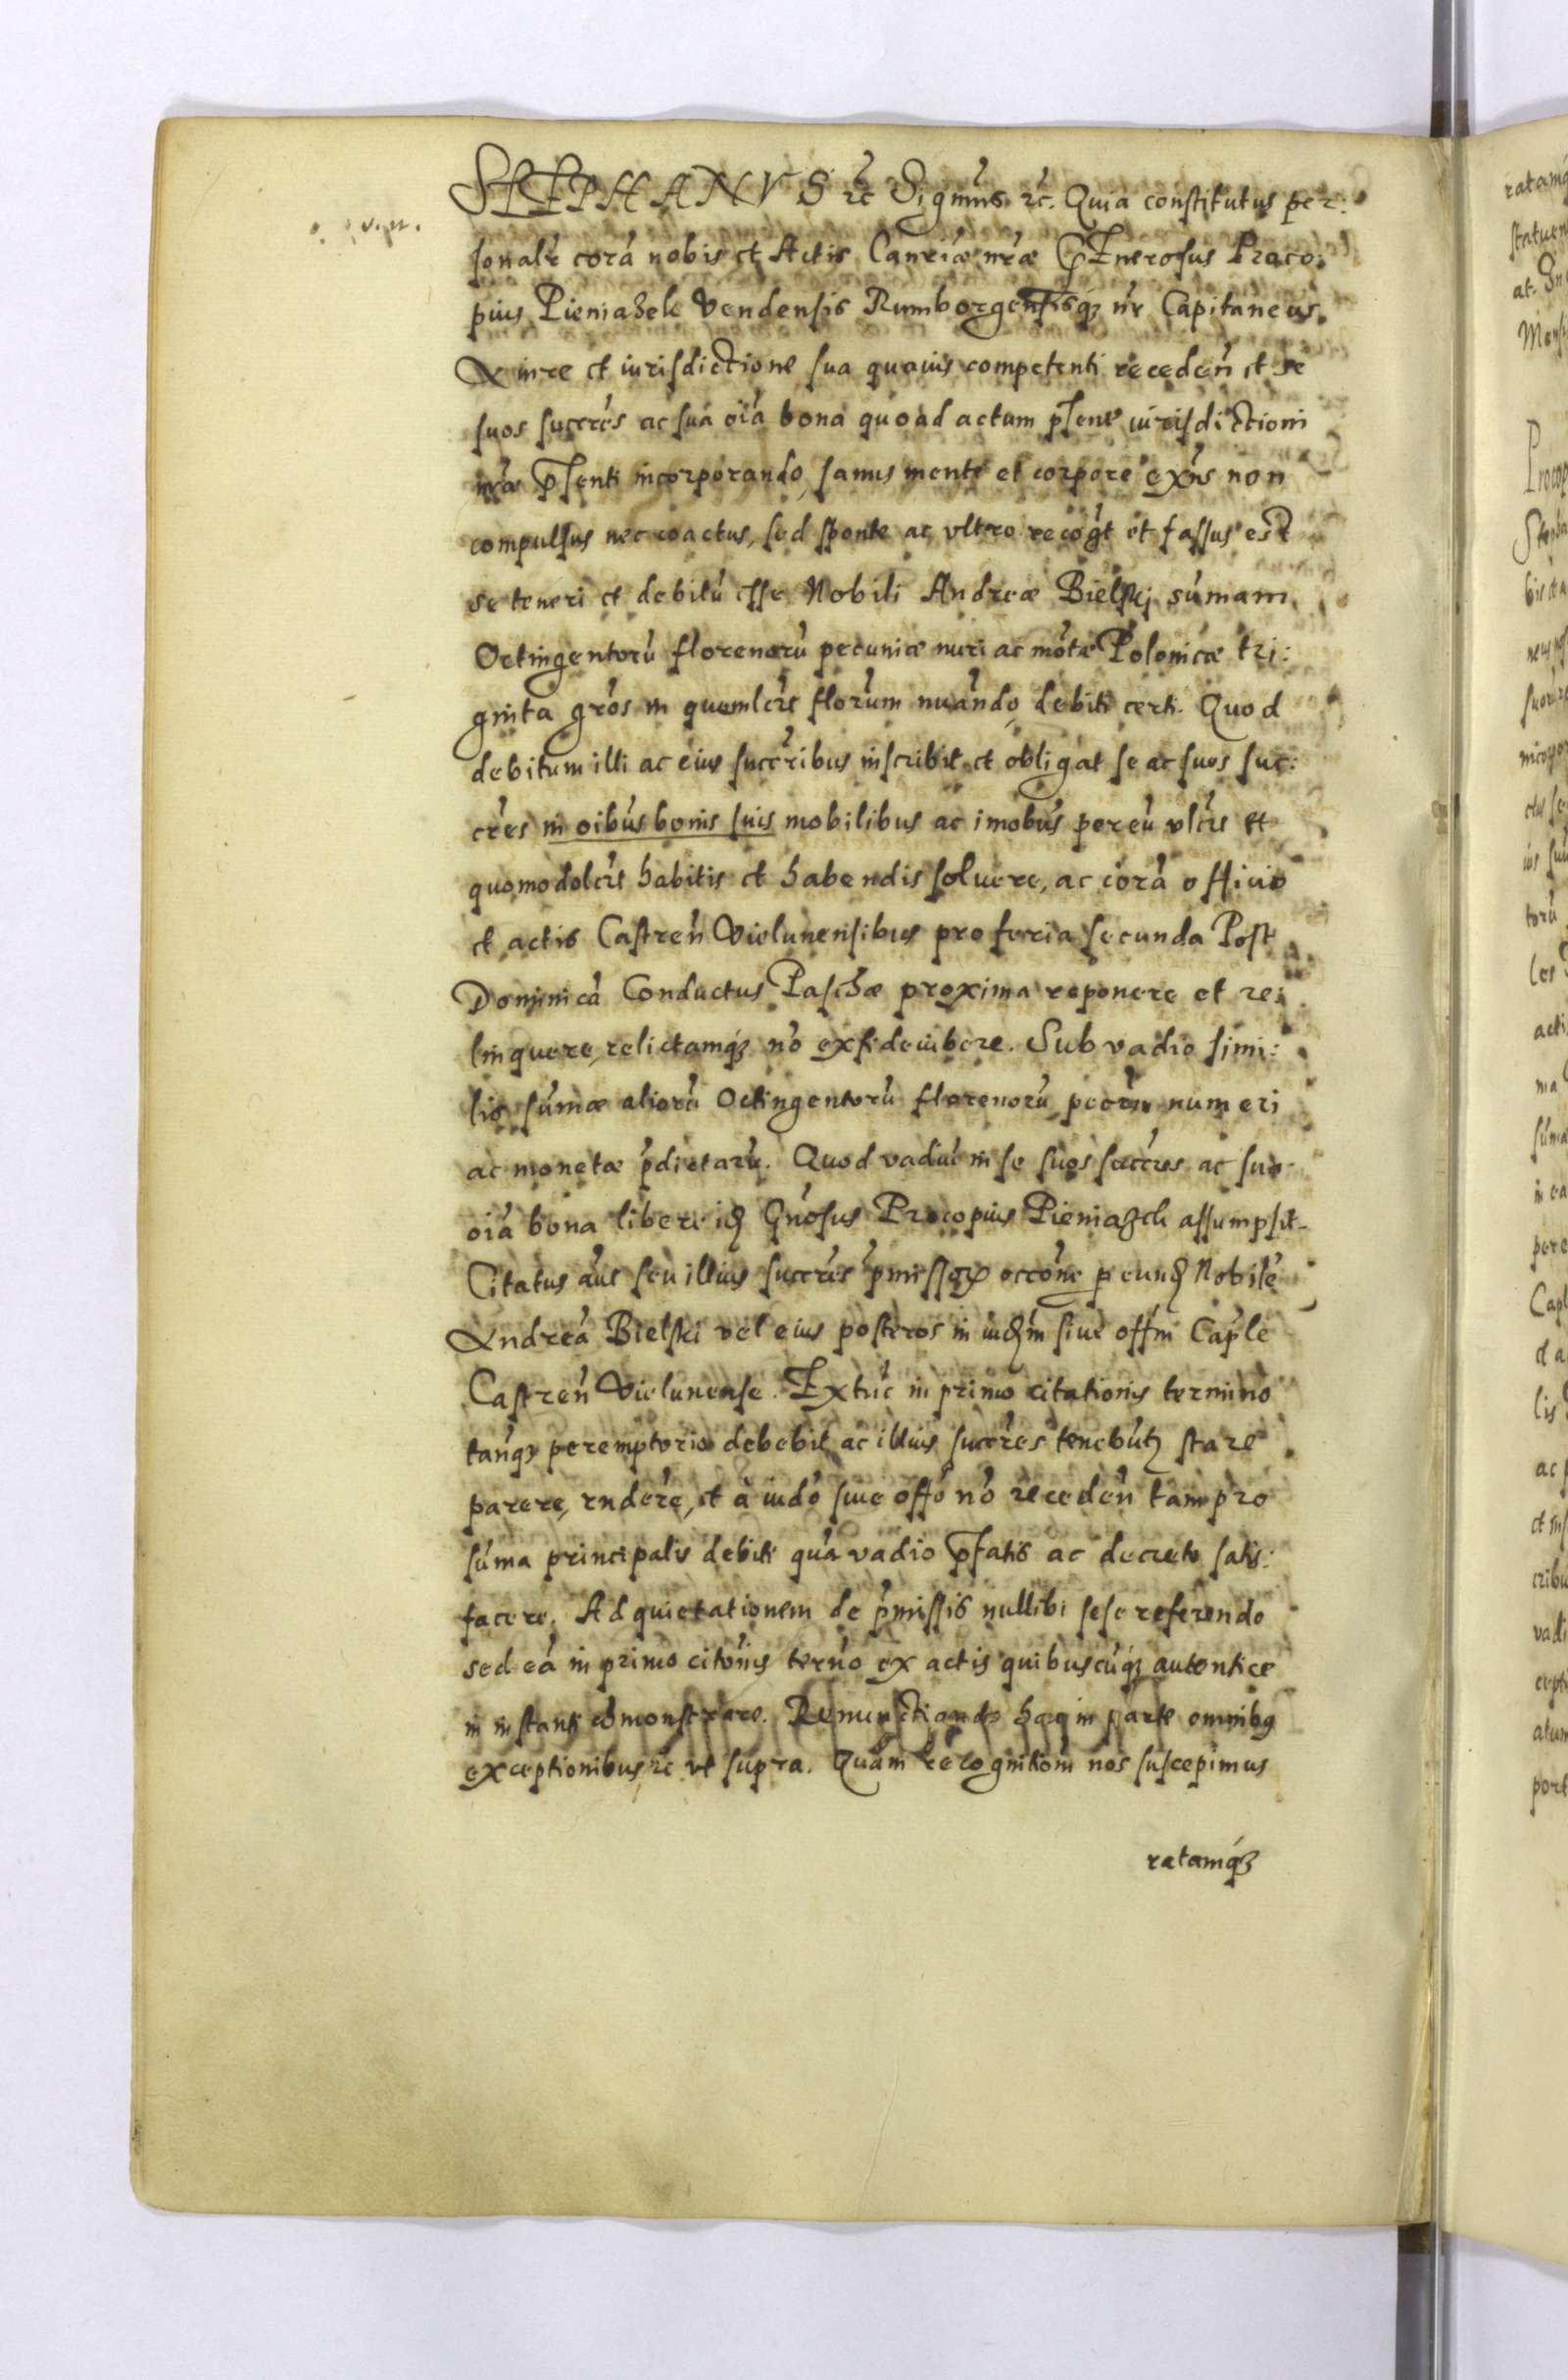 STEPHANVS rc̃ Significamus rc̃. Quia constitutus per:
sonalr̃ corã nobis et Actis Canriæ nr̃æ GEnerosus Proco:
pius Pieniazek Vendensis Rumborgensisq́ꝫ nr̃ Capitaneus.
A iure et iurisdictione sua quauis competenti receden̄ et se
suos succres ac sua oīa bona quoad actum pſene iurisdictioni
nr̃æ pſenti incorporando, sanus mente et corpore exn̄s non
compulsus nec coactus, sed sponte ac vltro recogt et fassus est
se teneri et debitū esse Nobili Andreæ Bielskj sūmam
Octingentorū florenorū pecuniæ nūri ac mōtæ Polonicæ tri:
ginta gros in quemlcr̃ florum nuando, debiti certi. Quod
debitum illi ac eius succribus inscribit et obligat se ac suos suc:
cres in oibus bonis suis mobilibus ac imobus pereū vlcr̃ et
quomodolcr̃ habitis et habendis soluere, ac corã officio
et actis Castren̄ Vielunensibus pro feria secunda Post
Dominicã Conductus Paschæ proxima reponere et re:
linquere, relictamq́ꝫ nō exfideiubere. Sub vadio simi:
lis sūmæ aliorū Octingentorū florenorū pecun̄ numeri
ac monetæ p̄dictarū. Quod vadiū in se suos succres ac sua
oīa bona libere idꝫ Gn̄osus Procopius Pieniazek assumpsit.
Citatus aūt seu illius succres p̄missoꝝ occōne p eundꝫ Nobilē
Andreã Bielski vel eius posteros in iudm̄ siue offm̄ Caple
Castren̄ Vielunense. Extūc in primo citationis termino
tanqꝫ peremptorio debebit ac illius succres tenebūtꝫ stare
parere, rndere, et à iudō siue offō nō receden̄ tam pro
sūma principalis debiti quã vadio p̄fatis ac decreto satis:
facere. Ad quietationem de p̄missis nullibi sese referendo
sed eã in primo citōnis tern̄o ex actis quibuscūq́ꝫ autentice
in instanti cōmonstrare. Renunctiando hac in parte omnibꝫ
exceptionibus rc̃ vt supra. Quam recognitiōm nos suscepimus
ratamq́ꝫ